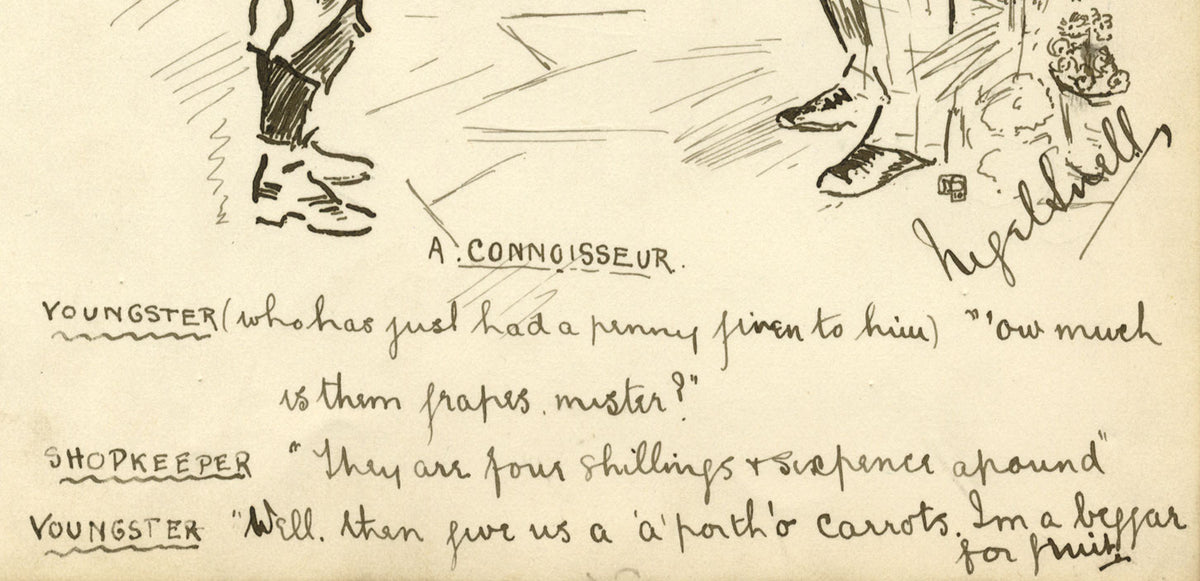 Nigel Snell
A. CONNOISSEUR.
YOUNGSTER (who has just had a penny given to him) "'ow much
is them grapes. mister?"
SHOPKEEPER "They are four shillings & sixpence a pound"
YOUNGSTER "Well. then give us a 'a'porth 'o carrots. Im a beggar
for fruit